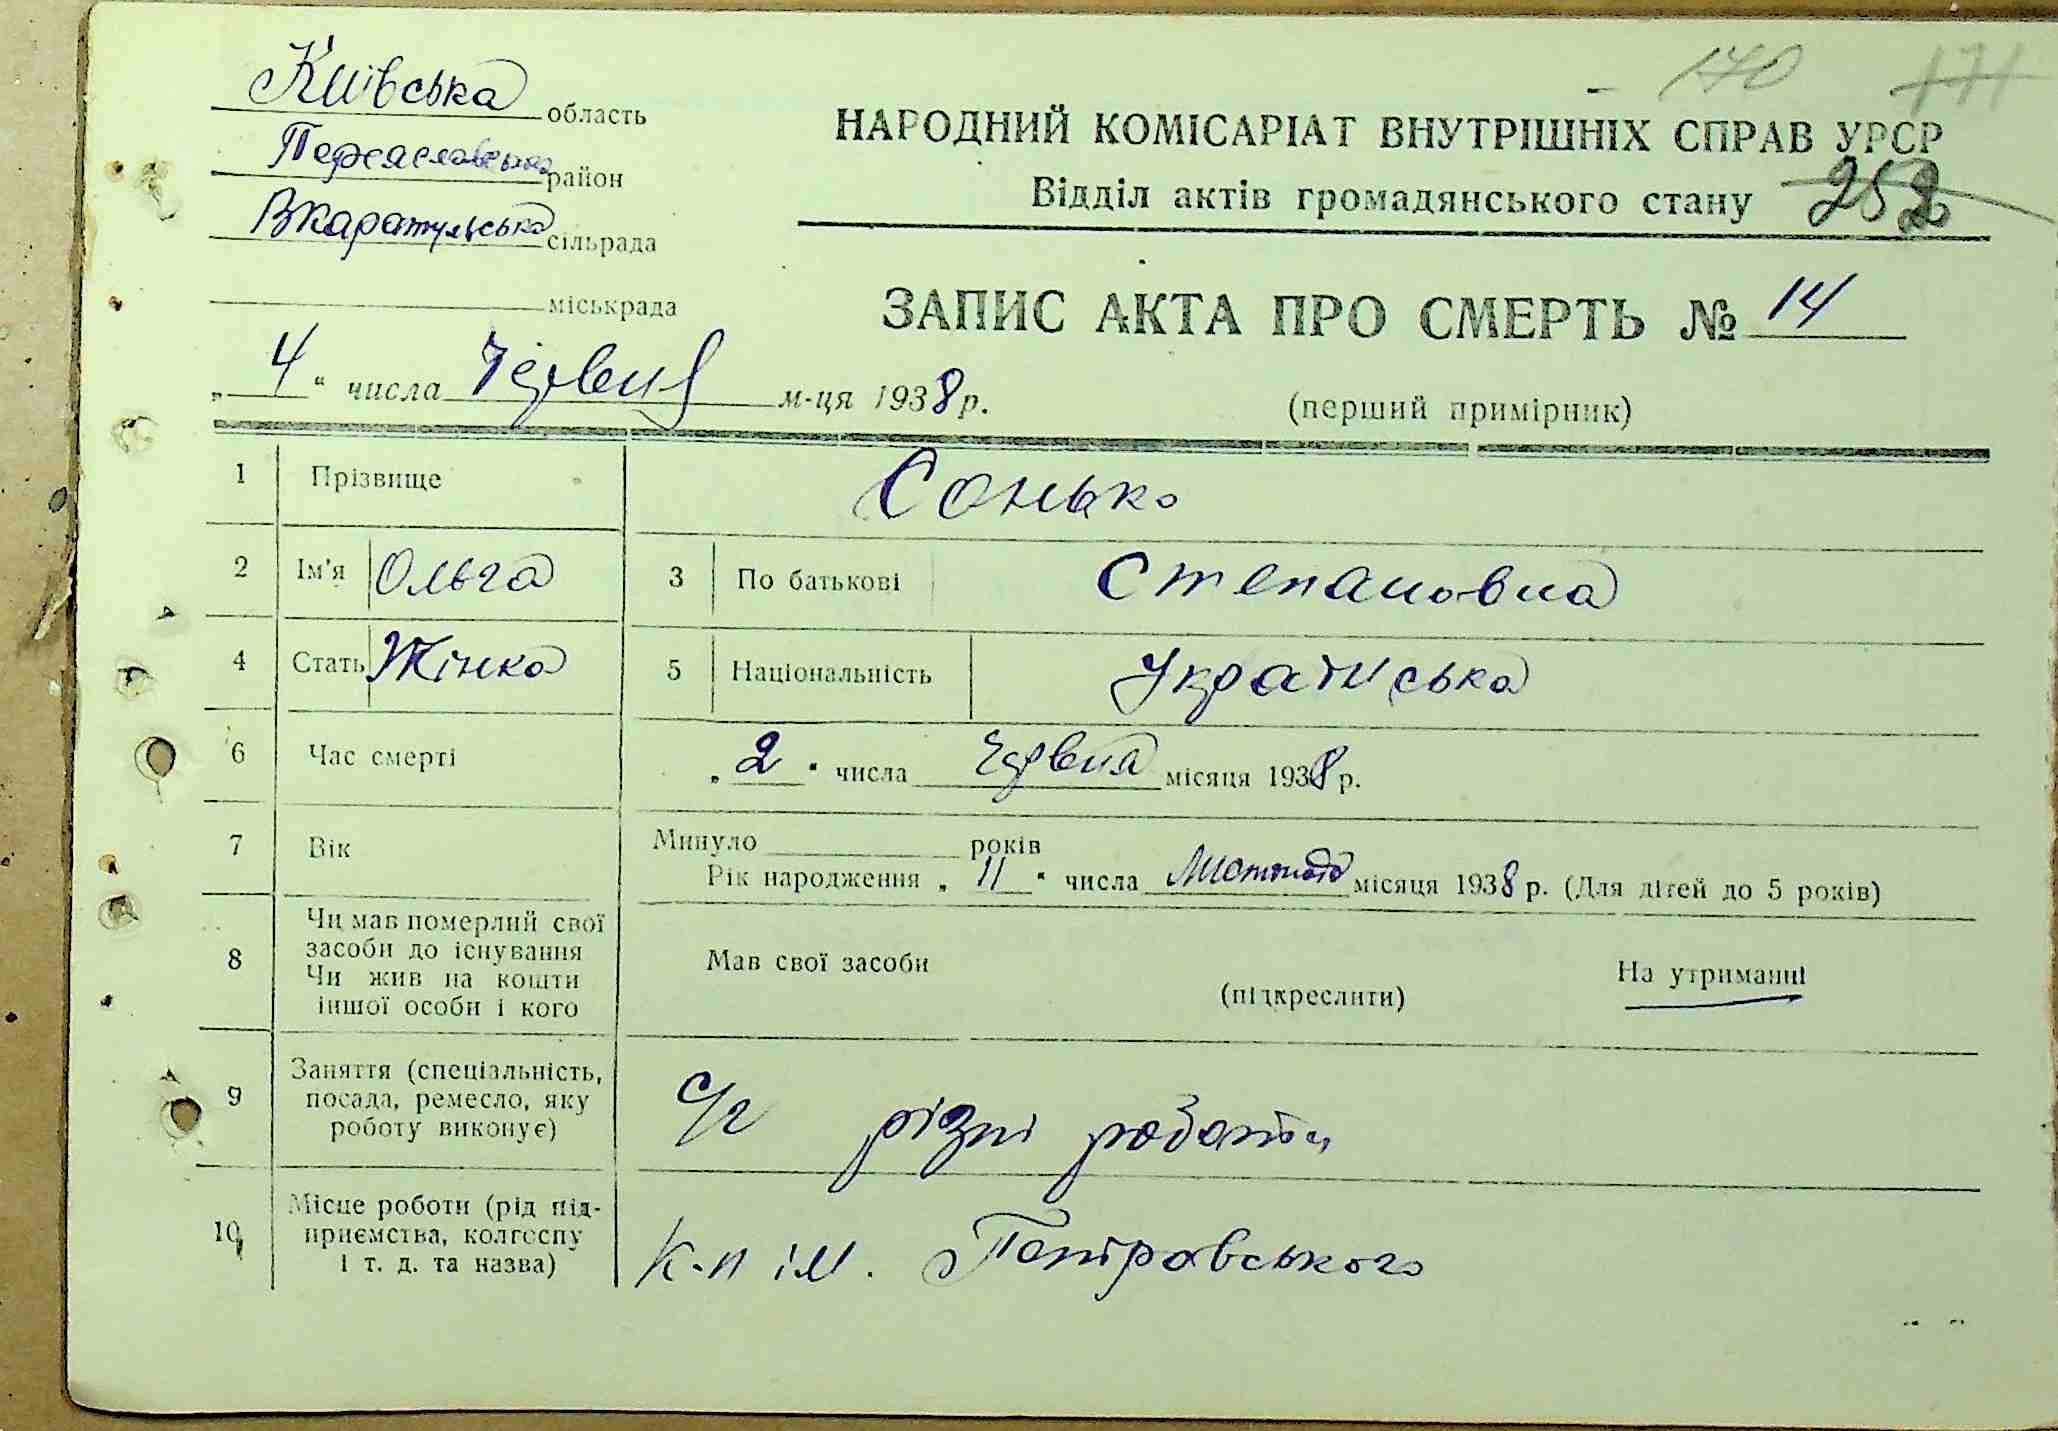 170 171
Київська область
Переяславський район
Вкаратульська сільрада
міськрада
НАРОДНИЙ КОМІСАРІАТ ВНУТРІШНІХ СПРАВ УРСР
Відділ актів громадянського стану 252
ЗАПИС АКТА ПРО СМЕРТЬ № 14
„ 4 “ числа Червня м-ця 1938 р.
(перший примірник)
1 Прізвище Сонько
2 Ім'я Ольга 3 По батькові Степановна
4 Стать Жінка 5 Національність Українська
6 Час смерті „ 2 “ числа Червня місяця 1938 р.
7 Вік Минуло років
Рік народження „ 11 “ числа Листопада місяця 1938 р. (Для дітей до 5 років)
8 Чи мав померлий свої
засоби до існування
Чи жив на кошти
іншої особи і кого
Мав свої засоби (підкреслити) На утриманні
9 Заняття (спеціальність,
посада, ремесло, яку
роботу виконує)
с/г різні роботи
10 Місце роботи (рід під-
приємства, колгоспу
і т. д. та назва)
к-п ім. Петровського